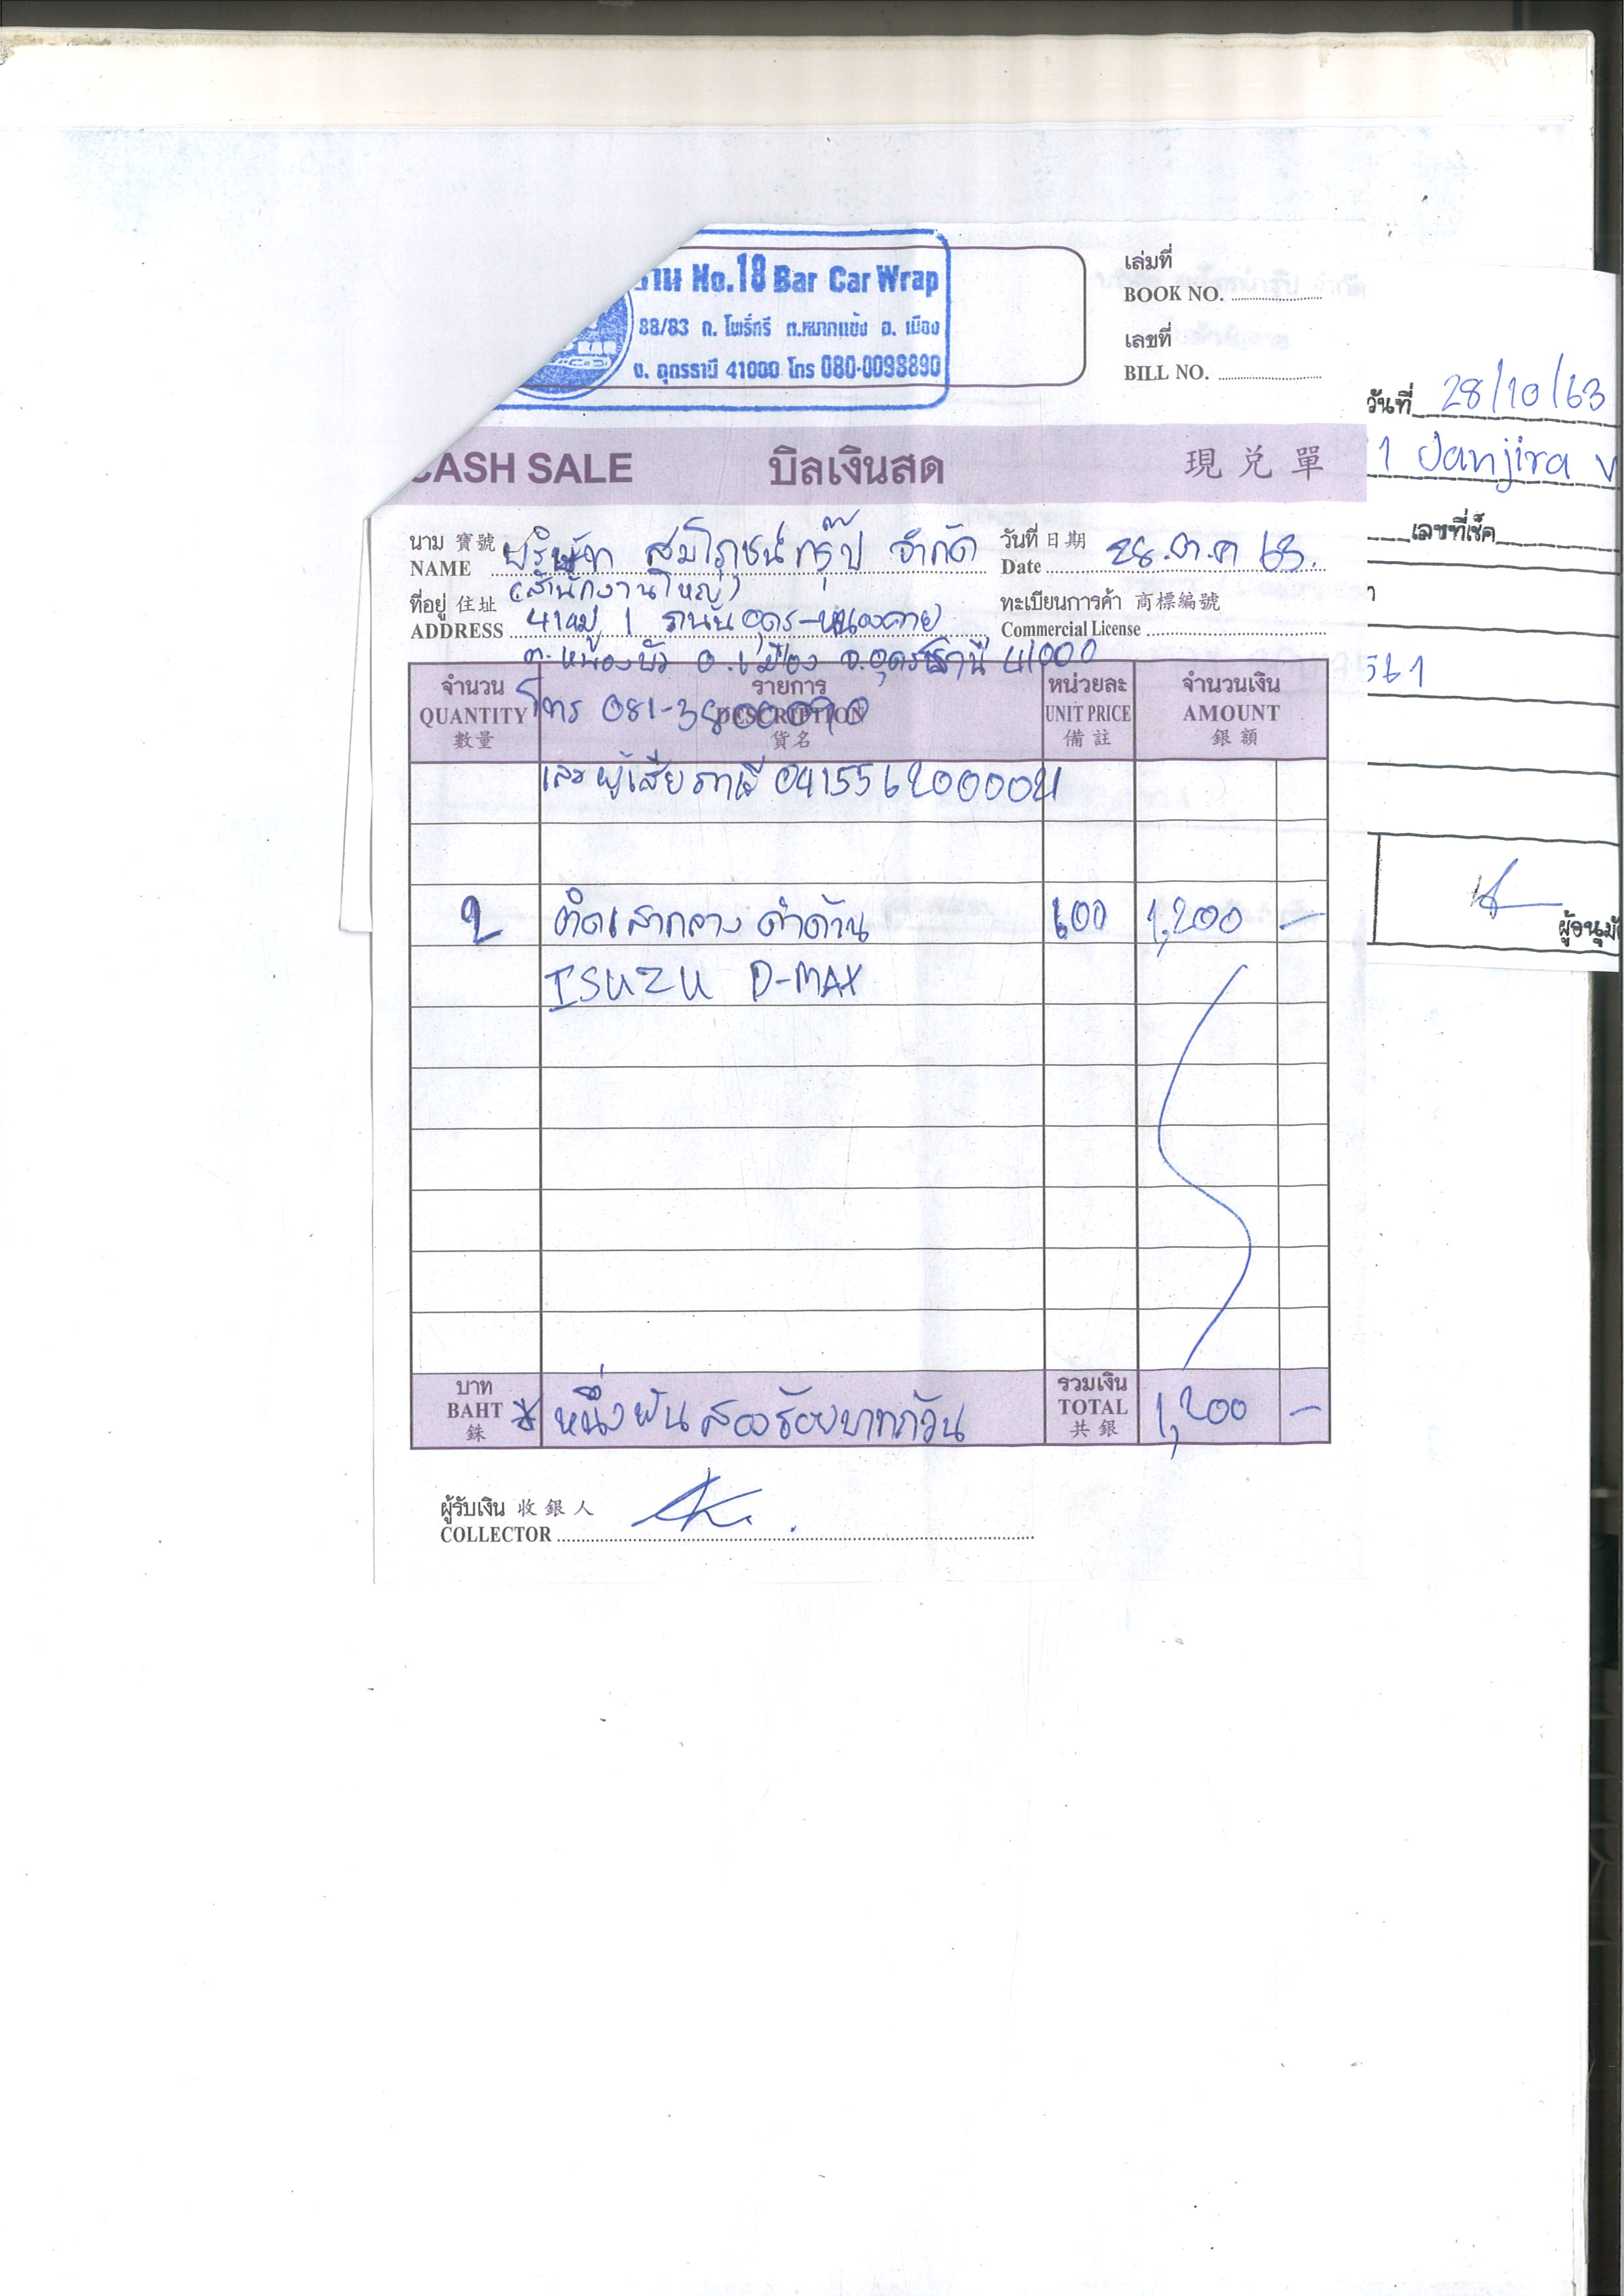 No.18 Bar Car Wrap
88/83 ถ. โพธิ์ศรี ต.หมากแข้ง อ. เมือง
จ. อุดรธานี 41000 โทร 080-0098890
เล่มที่
BOOK NO.
เลขที่
BILL NO.
CASH SALE บิลเงินสด 現兌單
นาม 寶號 บริษัท สมโภชน์กรุ๊ป จำกัด
NAME
วันที่ 日期 28.ต.ค 63.
Date
(สำนักงานใหญ่)
ที่อยู่ 住址 41 หมู่ 1 ถนน อุดร-หนองคาย
ADDRESS
ทะเบียนการค้า 商標編號
Commercial License
ต.หนองบัว อ.เมือง จ.อุดรธานี 41000
จำนวน รายการ หน่วยละ จำนวนเงิน
QUANTITY DESCRIPTION UNIT PRICE AMOUNT
數量 貨名 備註 銀額
โทร 081-3800090
เลขผู้เสียภาษี 041556200004
2 ติดเสากลางดำด้าน 600 1,200 -
ISUZU D-MAX
บาท รวมเงิน
BAHT หนึ่งพันสองร้อยบาทถ้วน TOTAL 1,200 -
銖 共銀
ผู้รับเงิน 收銀人
COLLECTOR
วันที่ 28/10/63
1 Janjira
เลขที่เช็ค
561
ผู้อนุมั